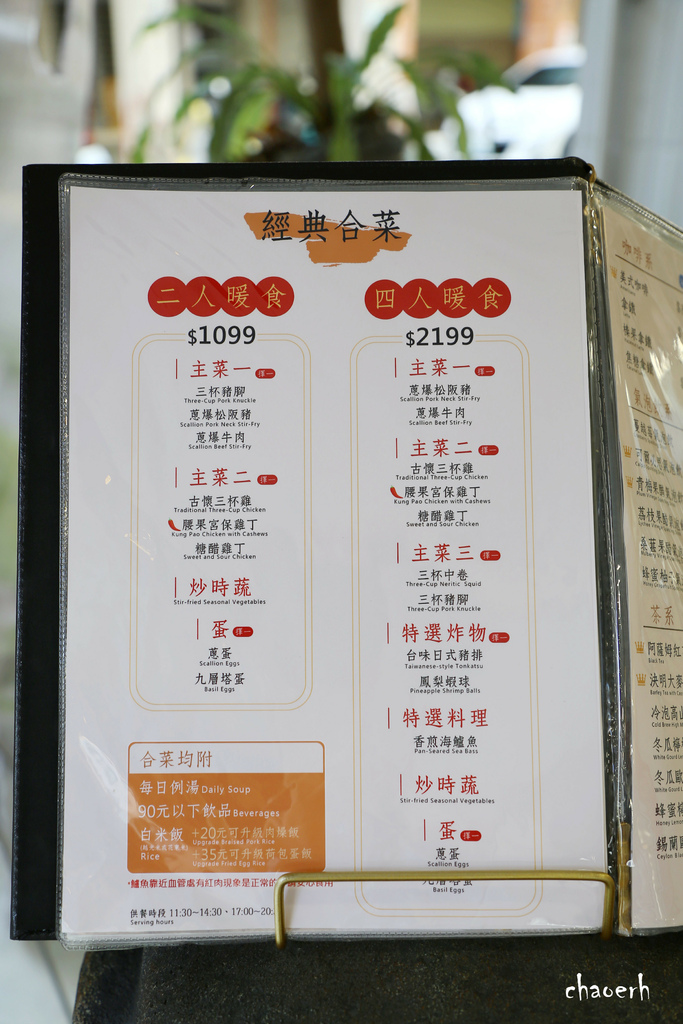 經典合菜
二人暖食
$1099
主菜一 擇一
三杯豬腳
Three-Cup Pork Knuckle
蔥爆松阪豬
Scallion Pork Neck Stir-Fry
蔥爆牛肉
Scallion Beef Stir-Fry
主菜二 擇一
古懷三杯雞
Traditional Three-Cup Chicken
腰果宮保雞丁
Kung Pao Chicken with Cashews
糖醋雞丁
Sweet and Sour Chicken
炒時蔬
Stir-fried Seasonal Vegetables
蛋 擇一
蔥蛋
Scallion Eggs
九層塔蛋
Basil Eggs
合菜均附
每日例湯 Daily Soup
90元以下飲品 Beverages
白米飯
Rice
+20元可升級肉燥飯
Upgrade Braised Pork Rice
+35元可升級荷包蛋飯
Upgrade Fried Egg Rice
*鱸魚靠近血管處有紅肉現象是正常的
供餐時段 11:30~14:30、17:00~20:
Serving hours
四人暖食
$2199
主菜一 擇一
蔥爆松阪豬
Scallion Pork Neck Stir-Fry
蔥爆牛肉
Scallion Beef Stir-Fry
主菜二 擇一
古懷三杯雞
Traditional Three-Cup Chicken
腰果宮保雞丁
Kung Pao Chicken with Cashews
糖醋雞丁
Sweet and Sour Chicken
主菜三 擇一
三杯中卷
Three-Cup Neritic Squid
三杯豬腳
Three-Cup Pork Knuckle
特選炸物 擇一
台味日式豬排
Taiwanese-style Tonkatsu
鳳梨蝦球
Pineapple Shrimp Balls
特選料理
香煎海鱸魚
Pan-Seared Sea Bass
炒時蔬
Stir-fried Seasonal Vegetables
蛋 擇一
蔥蛋
Scallion Eggs
九層塔蛋
Basil Eggs
咖啡系
美式咖啡
拿鐵
茶系
阿薩姆紅
Black Tea
決明大麥
冷泡高山
冬瓜檸
冬瓜歐
蜂蜜檸
Honey Lemon
錫蘭
Ceylon Blac
chaoerh